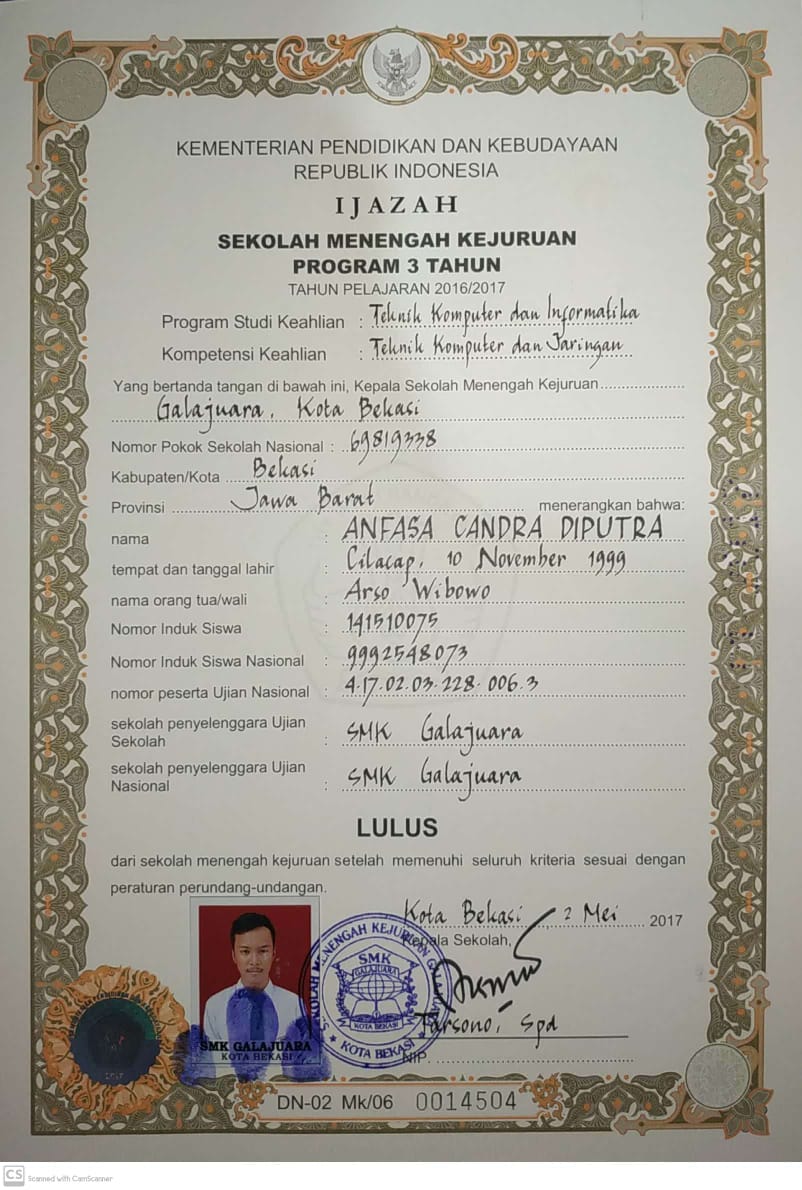 KEMENTERIAN PENDIDIKAN DAN KEBUDAYAAN
REPUBLIK INDONESIA
IJAZAH
SEKOLAH MENENGAH KEJURUAN
PROGRAM 3 TAHUN
TAHUN PELAJARAN 2016/2017
Program Studi Keahlian : Teknik Komputer dan Informatika
Kompetensi Keahlian : Teknik Komputer dan Jaringan
Yang bertanda tangan di bawah ini, Kepala Sekolah Menengah Kejuruan
Galajuara, Kota Bekasi
Nomor Pokok Sekolah Nasional : 69819338
Kabupaten/Kota Bekasi
Provinsi Jawa Barat menerangkan bahwa:
nama : ANFASA CANDRA DIPUTRA
tempat dan tanggal lahir : Cilacap, 10 November 1999
nama orang tua/wali : Arso Wibowo
Nomor Induk Siswa : 141510075
Nomor Induk Siswa Nasional : 9992548073
nomor peserta Ujian Nasional : 4-17-02-03-228-006-3
sekolah penyelenggara Ujian
Sekolah : SMK Galajuara
sekolah penyelenggara Ujian
Nasional : SMK Galajuara
LULUS
dari sekolah menengah kejuruan setelah memenuhi seluruh kriteria sesuai dengan
peraturan perundang-undangan.
Kota Bekasi, 2 Mei 2017
Kepala Sekolah,
SEKOLAH MENENGAH KEJURUAN GALAJUARA
SMK
GALAJUARA
KOTA BEKASI
KOTA BEKASI
Tarsono, Spd
SMK GALAJUARA
KOTA BEKASI
NIP.
DN-02 Mk/06 0014504
CS Scanned with CamScanner